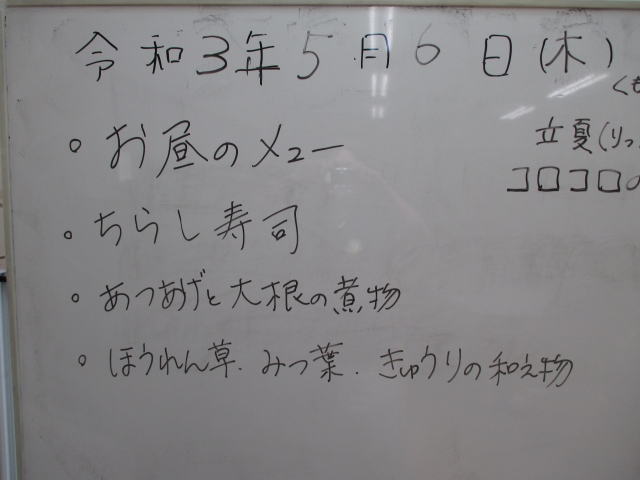 令和3年5月6日(木)
くも
立夏(りっ
コロコロの
・お昼のメュー
・ちらし寿司
・あつあげと大根の煮物
・ほうれん草.みつ葉.きゅうりの和え物